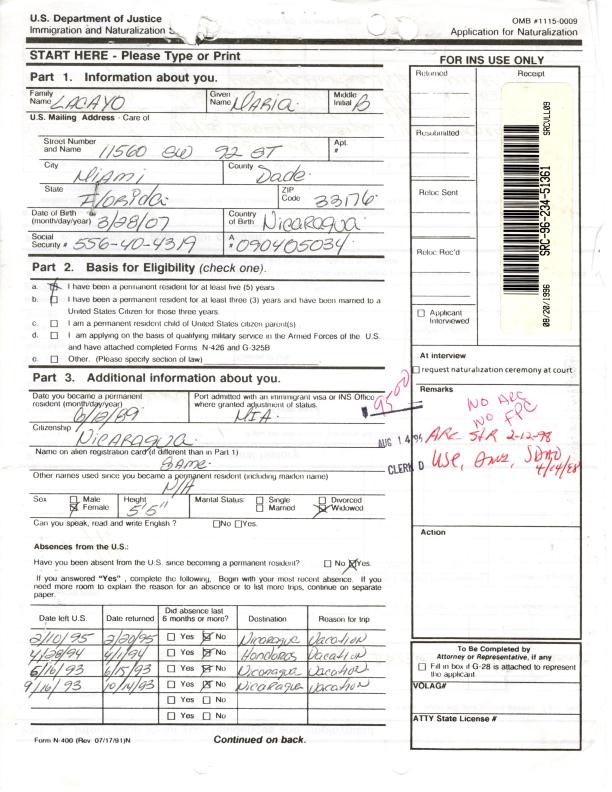 U.S. Department of Justice
Immigration and Naturalization S
OMB #1115-0009
Application for Naturalization
START HERE - Please Type or Print
Part 1. Information about you.
Family Name LACAYO Given Name MARIA Middle Initial B
U.S. Mailing Address - Care of
Street Number and Name 11560 SW 92 ST Apt. #
City Miami County Dade
State Florida ZIP Code 33176
Date of Birth (month/day/year) 3/28/07 Country of Birth Nicaragua
Social Security # 556-40-4319 A # 090405034
Part 2. Basis for Eligibility (check one).
a. I have been a permanent resident for at least five (5) years
b. I have been a permanent resident for at least three (3) years and have been married to a
United States Citizen for those three years.
c. I am a permanent resident child of United States citizen parent(s)
d. I am applying on the basis of qualifying military service in the Armed Forces of the U.S.
and have attached completed Forms N-426 and G-325B
e. Other. (Please specify section of law)
Part 3. Additional information about you.
Date you became a permanent resident (month/day/year) 6/12/89 Port admitted with an immigrant visa or INS Office where granted adjustment of status. MIA
Citizenship Nicaragua
Name on alien registration card (if different than in Part 1)
SAME
Other names used since you became a permanent resident (including maiden name)
N/A
Sex Male Female Height 5'5" Marital Status: Single Married Divorced Widowed
Can you speak, read and write English ? No Yes.
Absences from the U.S.:
Have you been absent from the U.S. since becoming a permanent resident? No Yes.
If you answered "Yes" , complete the following, Begin with your most recent absence. If you
need more room to explain the reason for an absence or to list more trips, continue on separate
paper.
Date left U.S. Date returned Did absence last 6 months or more? Destination Reason for trip
2/10/95 2/20/95 Yes No Nicaragua Vacation
4/28/94 Yes No Honduras Vacation
6/15/93 Yes No Nicaragua Vacation
9/16/93 10/14/93 Yes No Nicaragua Vacation
Yes No
Yes No
Form N-400 (Rev 07/17/91)N
Continued on back.
FOR INS USE ONLY
Returned Receipt
Resubmitted
Reloc Sent
Reloc Rec'd
Applicant Interviewed
SRCVLL09
SRC-96-234-51361
08/20/1996
At interview
request naturalization ceremony at court
Remarks
9500
NO ARC
NO FPC
AUG 14
CLERK D
ARC 2-12-98
Action
To Be Completed by
Attorney or Representative, if any
Fill in box if G-28 is attached to represent
the applicant
VOLAG#
ATTY State License #